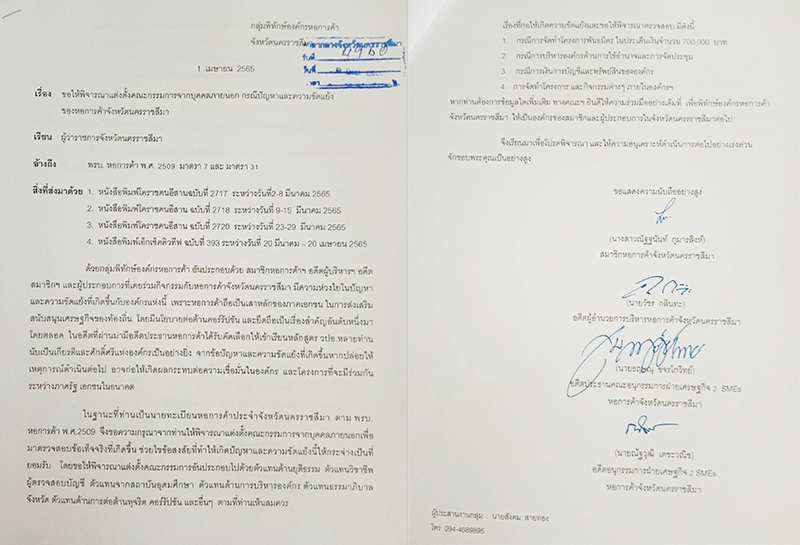 กลุ่มพิทักษ์องค์กรหอการค้า
จังหวัดนครราชสีมา
ศาลากลางจังหวัดนครราชสีมา
วันที่
1 เมษายน 2565
เรื่อง ขอให้พิจารณาแต่งตั้งคณะกรรมการจากบุคคลภายนอก กรณีปัญหาและความขัดแย้ง
ของหอการค้าจังหวัดนครราชสีมา
เรียน ผู้ว่าราชการจังหวัดนครราชสีมา
อ้างถึง พรบ. หอการค้า พ.ศ. 2509 มาตรา 7 และ มาตรา 31
สิ่งที่ส่งมาด้วย 1. หนังสือพิมพ์โคราชคนอีสานฉบับที่ 2717 ระหว่างวันที่2-8 มีนาคม 2565
2. หนังสือพิมพ์โคราชคนอีสานฉบับที่ 2718 ระหว่างวันที่ 9-15 มีนาคม 2565
3. หนังสือพิมพ์โคราชคนอีสานฉบับที่ 2720 ระหว่างวันที่ 23-29 มีนาคม 2565
4. หนังสือพิมพ์เอ็กเซ็คคิวทีฟ ฉบับที่ 393 ระหว่างวันที่ 20 มีนาคม – 20 เมษายน 2565
ด้วยกลุ่มพิทักษ์องค์กรหอการค้า อันประกอบด้วย สมาชิกหอการค้าฯ อดีตผู้บริหารฯ อดีต
สมาชิกฯ และผู้ประกอบการที่เคยร่วมกิจกรรมกับหอการค้าจังหวัดนครราชสีมา มีความห่วงใยในปัญหา
และความขัดแย้งที่เกิดขึ้นกับองค์กรแห่งนี้ เพราะหอการค้าถือเป็นเสาหลักของภาคเอกชน ในการส่งเสริม
สนับสนุนเศรษฐกิจของท้องถิ่น โดยมีนโยบายต่อต้านคอร์รัปชัน และยึดถือเป็นเรื่องสำคัญอันดับหนึ่งมา
โดยตลอด ในอดีตที่ผ่านมามีอดีตประธานหอการค้าได้รับคัดเลือกให้เข้าเรียนหลักสูตร วปอ.หลายท่าน
นับเป็นเกียรติและศักดิ์ศรีแห่งองค์กรเป็นอย่างยิ่ง จากข้อปัญหาและความขัดแย้งที่เกิดขึ้นหากปล่อยให้
เหตุการณ์ดำเนินต่อไป อาจก่อให้เกิดผลกระทบต่อความเชื่อมั่นในองค์กร และโครงการที่จะมีร่วมกัน
ระหว่างภาครัฐ เอกชนในอนาคต
ในฐานะที่ท่านเป็นนายทะเบียนหอการค้าประจำจังหวัดนครราชสีมา ตาม พรบ.
หอการค้า พ.ศ.2509 จึงขอความกรุณาจากท่านให้พิจารณาแต่งตั้งคณะกรรมการจากบุคคลภายนอกเพื่อ
มาตรวจสอบข้อเท็จจริงที่เกิดขึ้น ช่วยไขข้อสงสัยที่ทำให้เกิดปัญหาและความขัดแย้งนี้ให้กระจ่างเป็นที่
ยอมรับ โดยขอให้พิจารณาแต่งตั้งคณะกรรมการอันประกอบไปด้วยตัวแทนด้านยุติธรรม ตัวแทนวิชาชีพ
ผู้ตรวจสอบบัญชี ตัวแทนจากสถาบันอุดมศึกษา ตัวแทนด้านการบริหารองค์กร ตัวแทนธรรมาภิบาล
จังหวัด ตัวแทนด้านการต่อต้านทุจริต คอร์รัปชัน และอื่นๆ ตามที่ท่านเห็นสมควร
เรื่องที่ก่อให้เกิดความขัดแย้งและขอให้พิจารณาตรวจสอบ มีดังนี้
1. กรณีการจัดทำโครงการพันธมิตร ในประเด็นเงินจำนวน 700,000 บาท
2. กรณีการบริหารองค์กรด้านการใช้อำนาจและการจัดประชุม
3. กรณีการเงินการบัญชีและทรัพย์สินขององค์กร
4. การจัดทำโครงการ และกิจกรรมต่างๆ ภายในองค์กรฯ
หากท่านต้องการข้อมูลใดเพิ่มเติม ทางคณะฯ ยินดีให้ความร่วมมืออย่างเต็มที่ เพื่อพิทักษ์องค์กรหอการค้า
จังหวัดนครราชสีมา ให้เป็นองค์กรของสมาชิกและผู้ประกอบการในจังหวัดนครราชสีมาต่อไป
จึงเรียนมาเพื่อโปรดพิจารณา และให้ความอนุเคราะห์ดำเนินการต่อไปอย่างเร่งด่วน
จักขอบพระคุณเป็นอย่างสูง
ขอแสดงความนับถืออย่างสูง
(นางสาวณัฐฐนันท์ กุมารสิงห์)
สมาชิกหอการค้าจังหวัดนครราชสีมา
(นายวัชร กลินทะ)
อดีตผู้อำนวยการบริหารหอการค้าจังหวัดนครราชสีมา
ขจรโกวิทย์)
อดีตประธานคณะอนุกรรมการฝ่ายเศรษฐกิจ 2 SMEs
หอการค้าจังหวัดนครราชสีมา
(นายณัฐวุฒิ เตชะวณิช)
อดีตอนุกรรมการฝ่ายเศรษฐกิจ 2 SMEs
หอการค้าจังหวัดนครราชสีมา
ผู้ประสานงานกลุ่ม : นายสังคม สายทอง
โทร 094-4689895